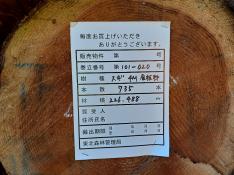 毎度お買上げいただき
ありがとうございます。
販売物件 第 号
巻立番号 第101-020号
樹種 スギ 4M
本数 735 本
材積 226.488 m
買受人
住所氏名
搬出期間
東北森林管理局